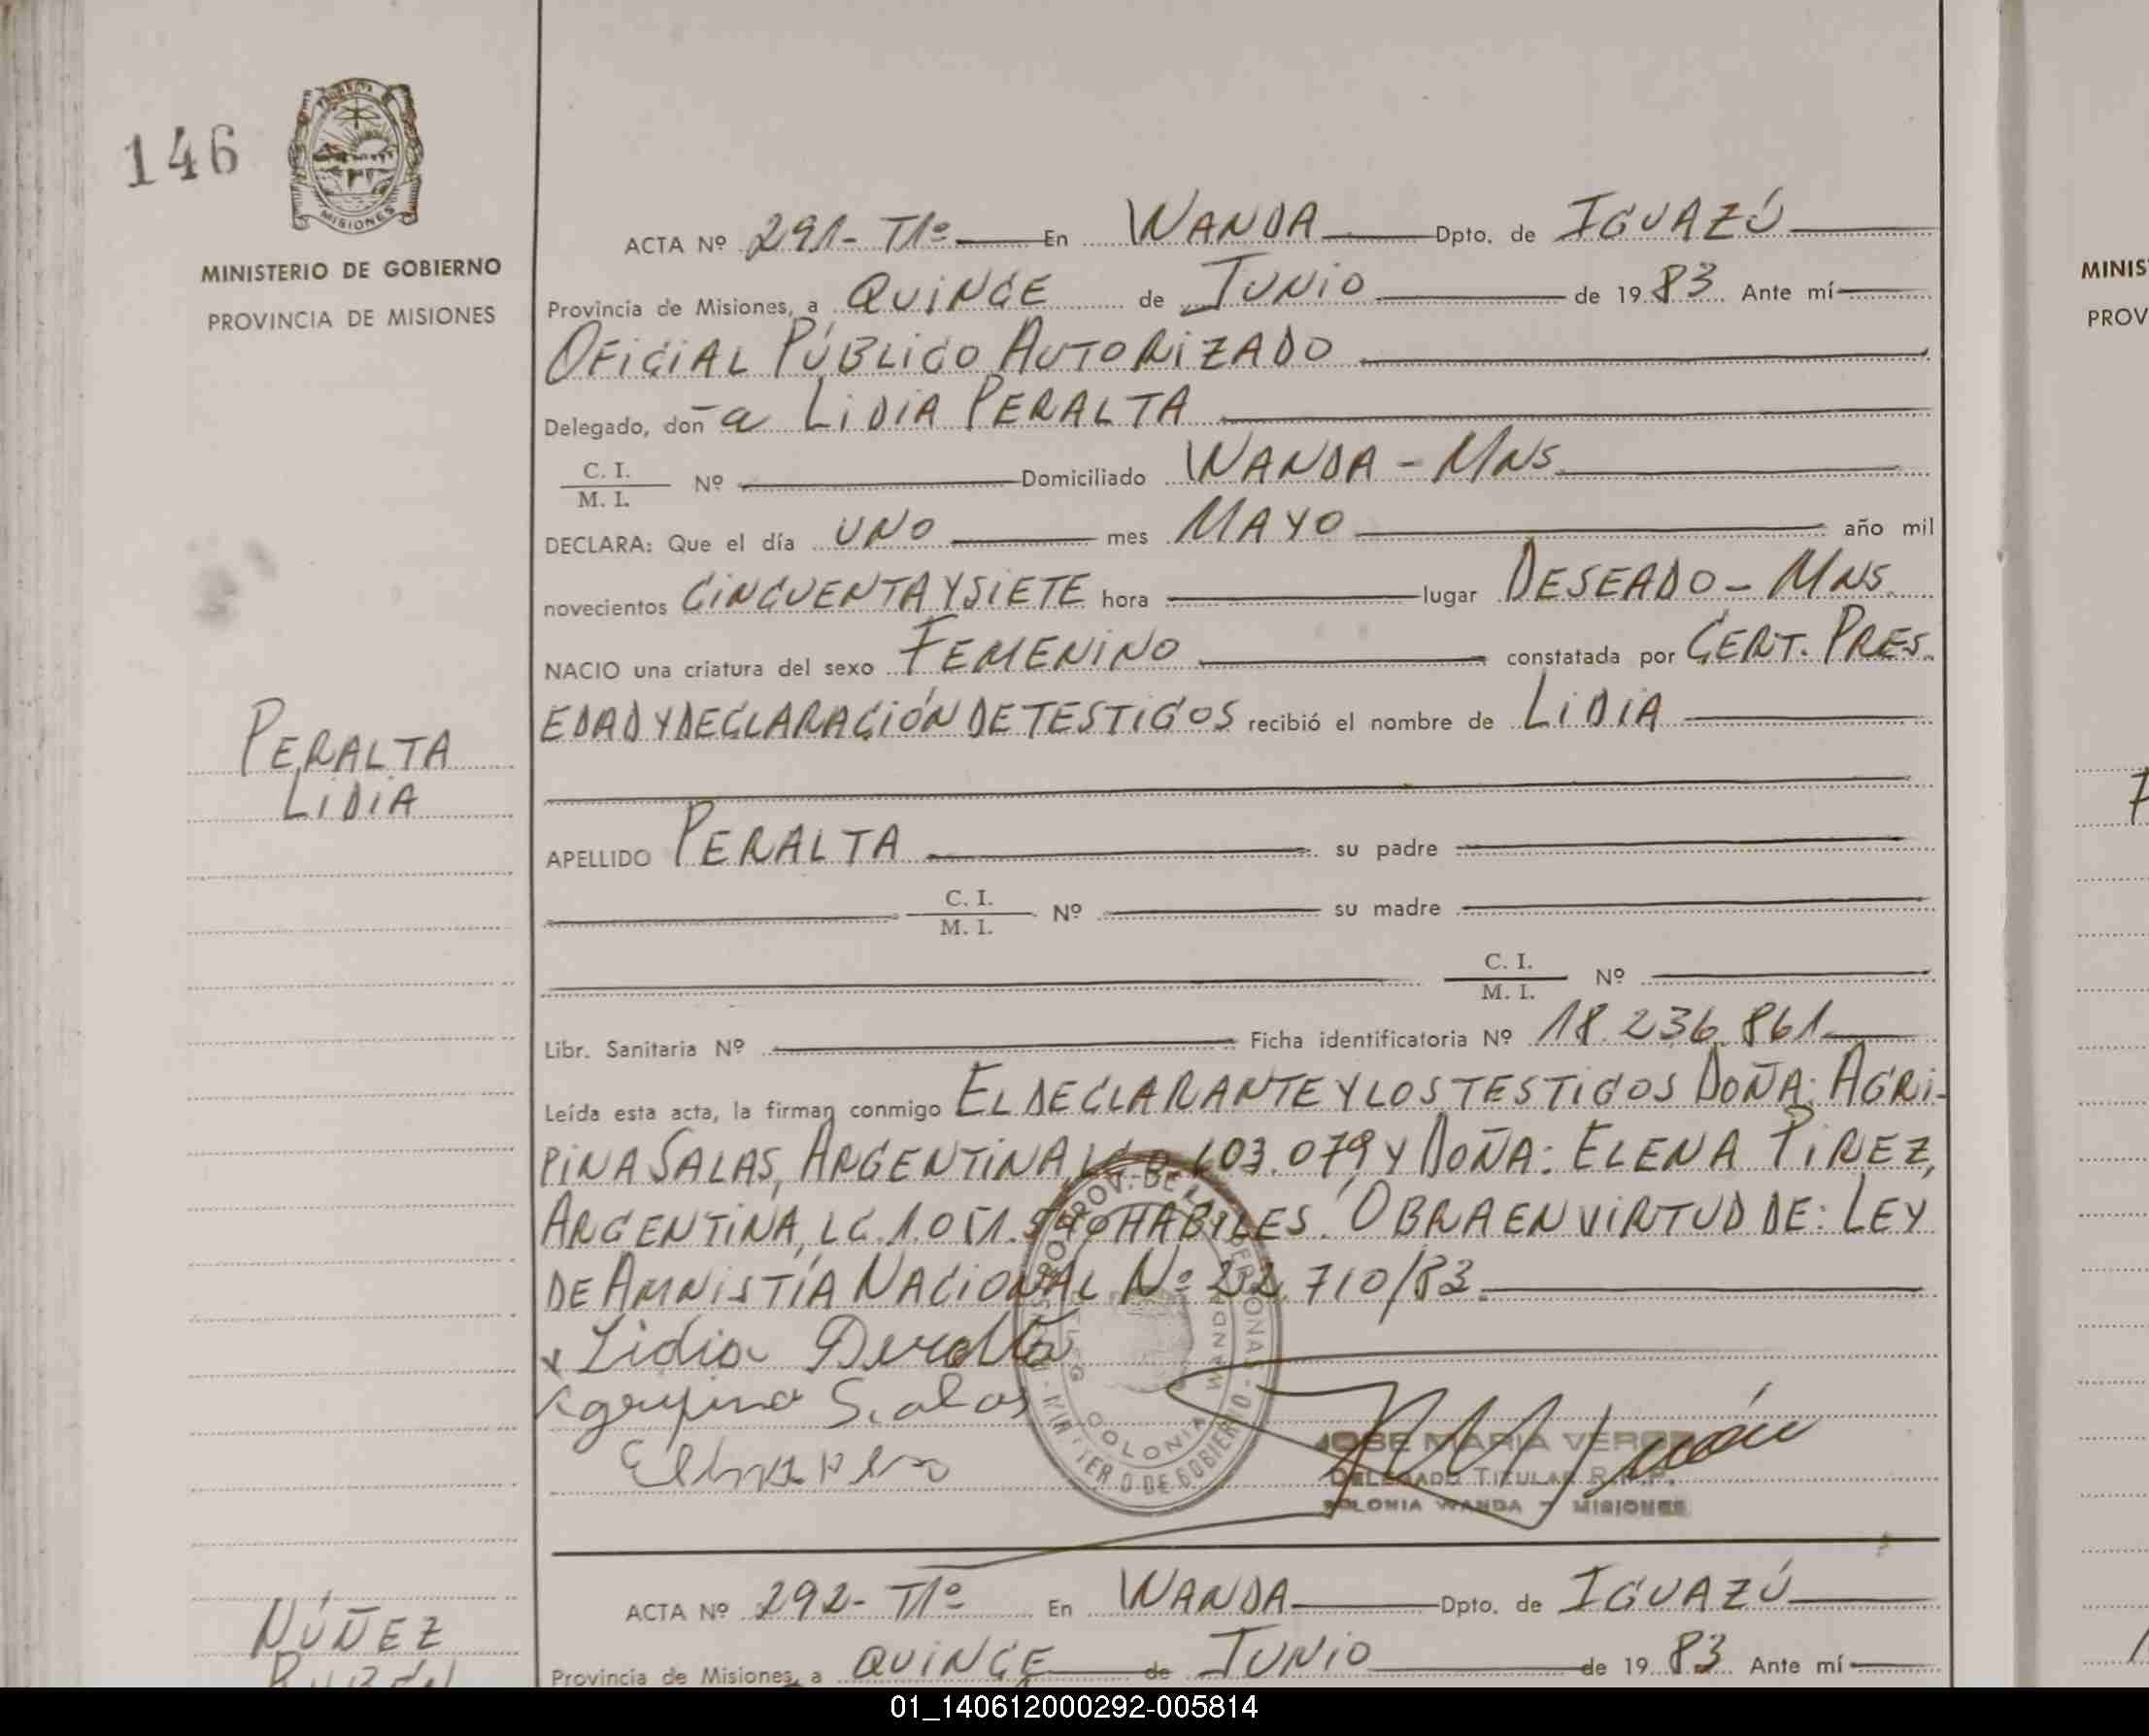 146
MISIONES
MINISTERIO DE GOBIERNO
PROVINCIA DE MISIONES
PERALTA
LIDIA
ACTA Nº 291- T1º En WANDA Dpto. de IGUAZÚ
Provincia de Misiones, a QUINCE de JUNIO de 1983 Ante mí
OFICIAL PÚBLICO AUTORIZADO
Delegado, don a LIDIA PERALTA
C. I.
M. I. Nº Domiciliado WANDA - MNS
DECLARA: Que el día UNO mes MAYO año mil
novecientos CINCUENTA Y SIETE hora lugar DESEADO - MNS.
NACIO una criatura del sexo FEMENINO constatada por CERT. PRES.
EDAD Y DECLARACIÓN DE TESTIGOS recibió el nombre de LIDIA
APELLIDO PERALTA su padre
C. I.
M. I. Nº su madre
C. I.
M. I. Nº
Libr. Sanitaria Nº Ficha identificatoria Nº 18.236.861
Leída esta acta, la firman conmigo EL DECLARANTE Y LOS TESTIGOS DOÑA: AGRI-
PINA SALAS, ARGENTINA, 403.079 Y DOÑA: ELENA PIREZ,
ARGENTINA, LC. HABILES. OBRA EN VIRTUD DE: LEY
DE AMNISTÍA NACIONAL Nº 22.710/83.
x Lidia Peralta
Salas
COLONIA WANDA
MINISTERIO DE GOBIERNO
JOSE MARIA
DELEGADO TITULAR R.P.P.
COLONIA WANDA - MISIONES
NÚÑEZ
RUBÉN
ACTA Nº 292- T1º En WANDA Dpto. de IGUAZÚ
Provincia de Misiones, a QUINCE de JUNIO de 1983 Ante mí
MINIS
PROV
01_140612000292-005814